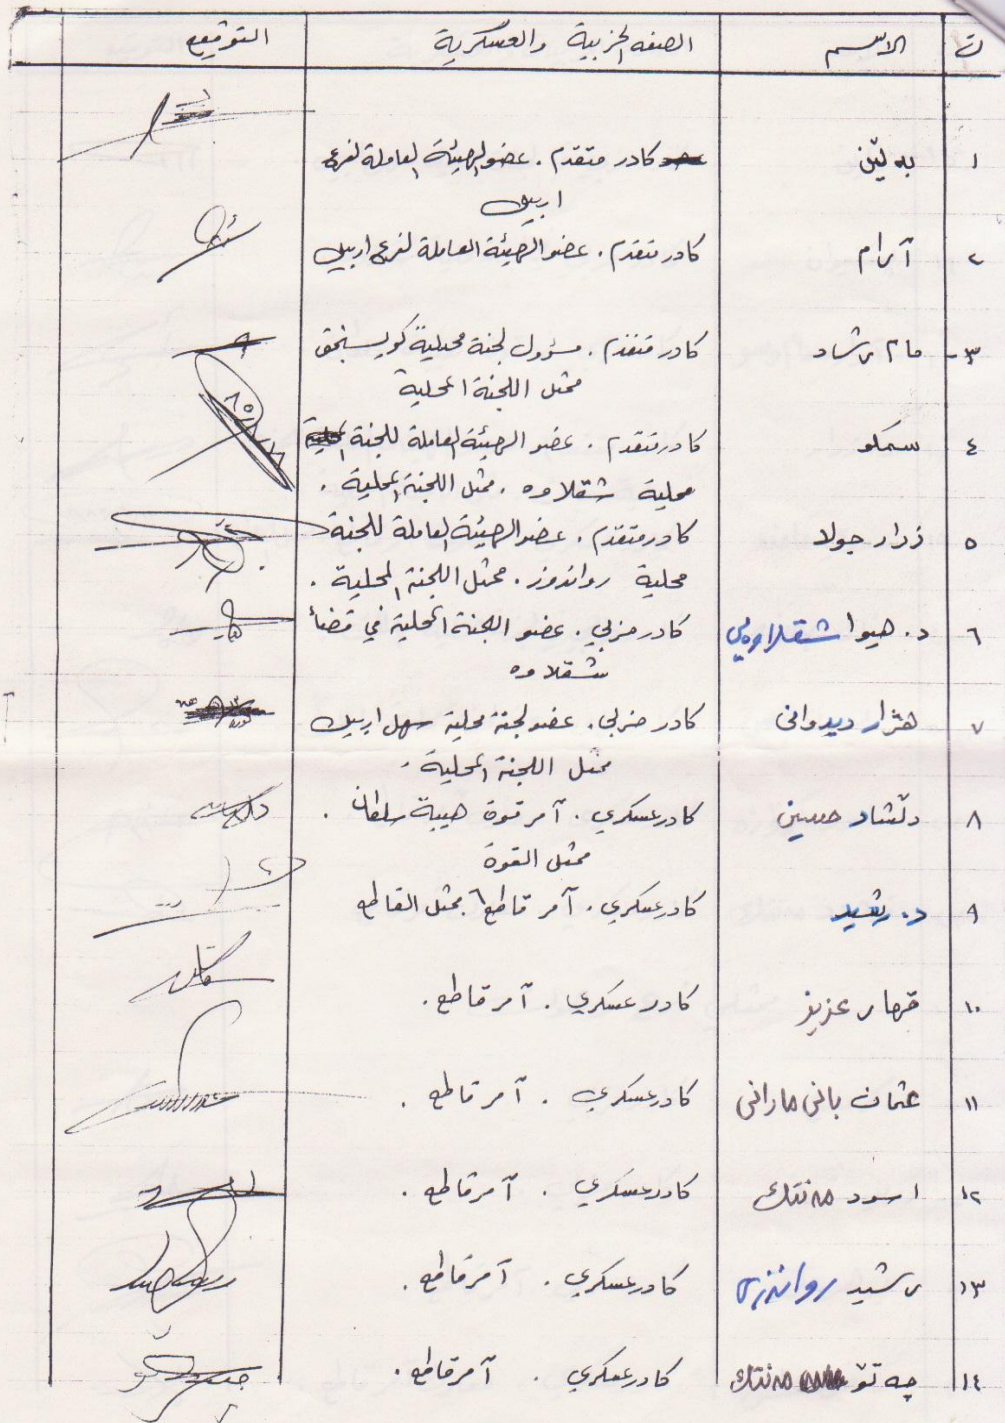 ت الاسم الصفه الحزبية والعسكرية التوقيع
١ به ڵێن كادر متقدم . عضو الهيئة العاملة لفرع
اربيل
٢ آرام كادر متقدم . عضو الهيئة العاملة لفرع اربيل
٣- مام رشاد كادر متقدم . مسؤول لجنة محلية كويسنجق
ممثل اللجنة المحلية
٤ سمكو كادر متقدم . عضو الهيئة العاملة للجنة
محلية شقلاوه . ممثل اللجنة المحلية .
٥ زرار جولا كادر متقدم . عضو الهيئة العاملة للجنة
محلية رواندوز . ممثل اللجنة المحلية .
٦ د. هيوا شقلاوەيي كادر حزبي . عضو اللجنة المحلية في قضأ
شقلاوه
٧ هژار ديدوانى كادر حزبي . عضو لجنة محلية سهل اربيل
ممثل اللجنة المحلية .
٨ دلشاد حسين كادر عسكري . آمر قوة هيبة سلطان .
ممثل القوة
٩ د. رشيد كادر عسكري . آمر قاطع ٦ . ممثل القاطع
١٠ قهار عزيز كادر عسكري . آمر قاطع .
١١ عثمان بانى مارانى كادر عسكري . آمر قاطع .
١٢ اسود مەنتك كادر عسكري . آمر قاطع .
١٣ رشيد رواندزى كادر عسكري . آمر قاطع .
١٤ چه تۆ مەنتك كادر عسكري . آمر قاطع .